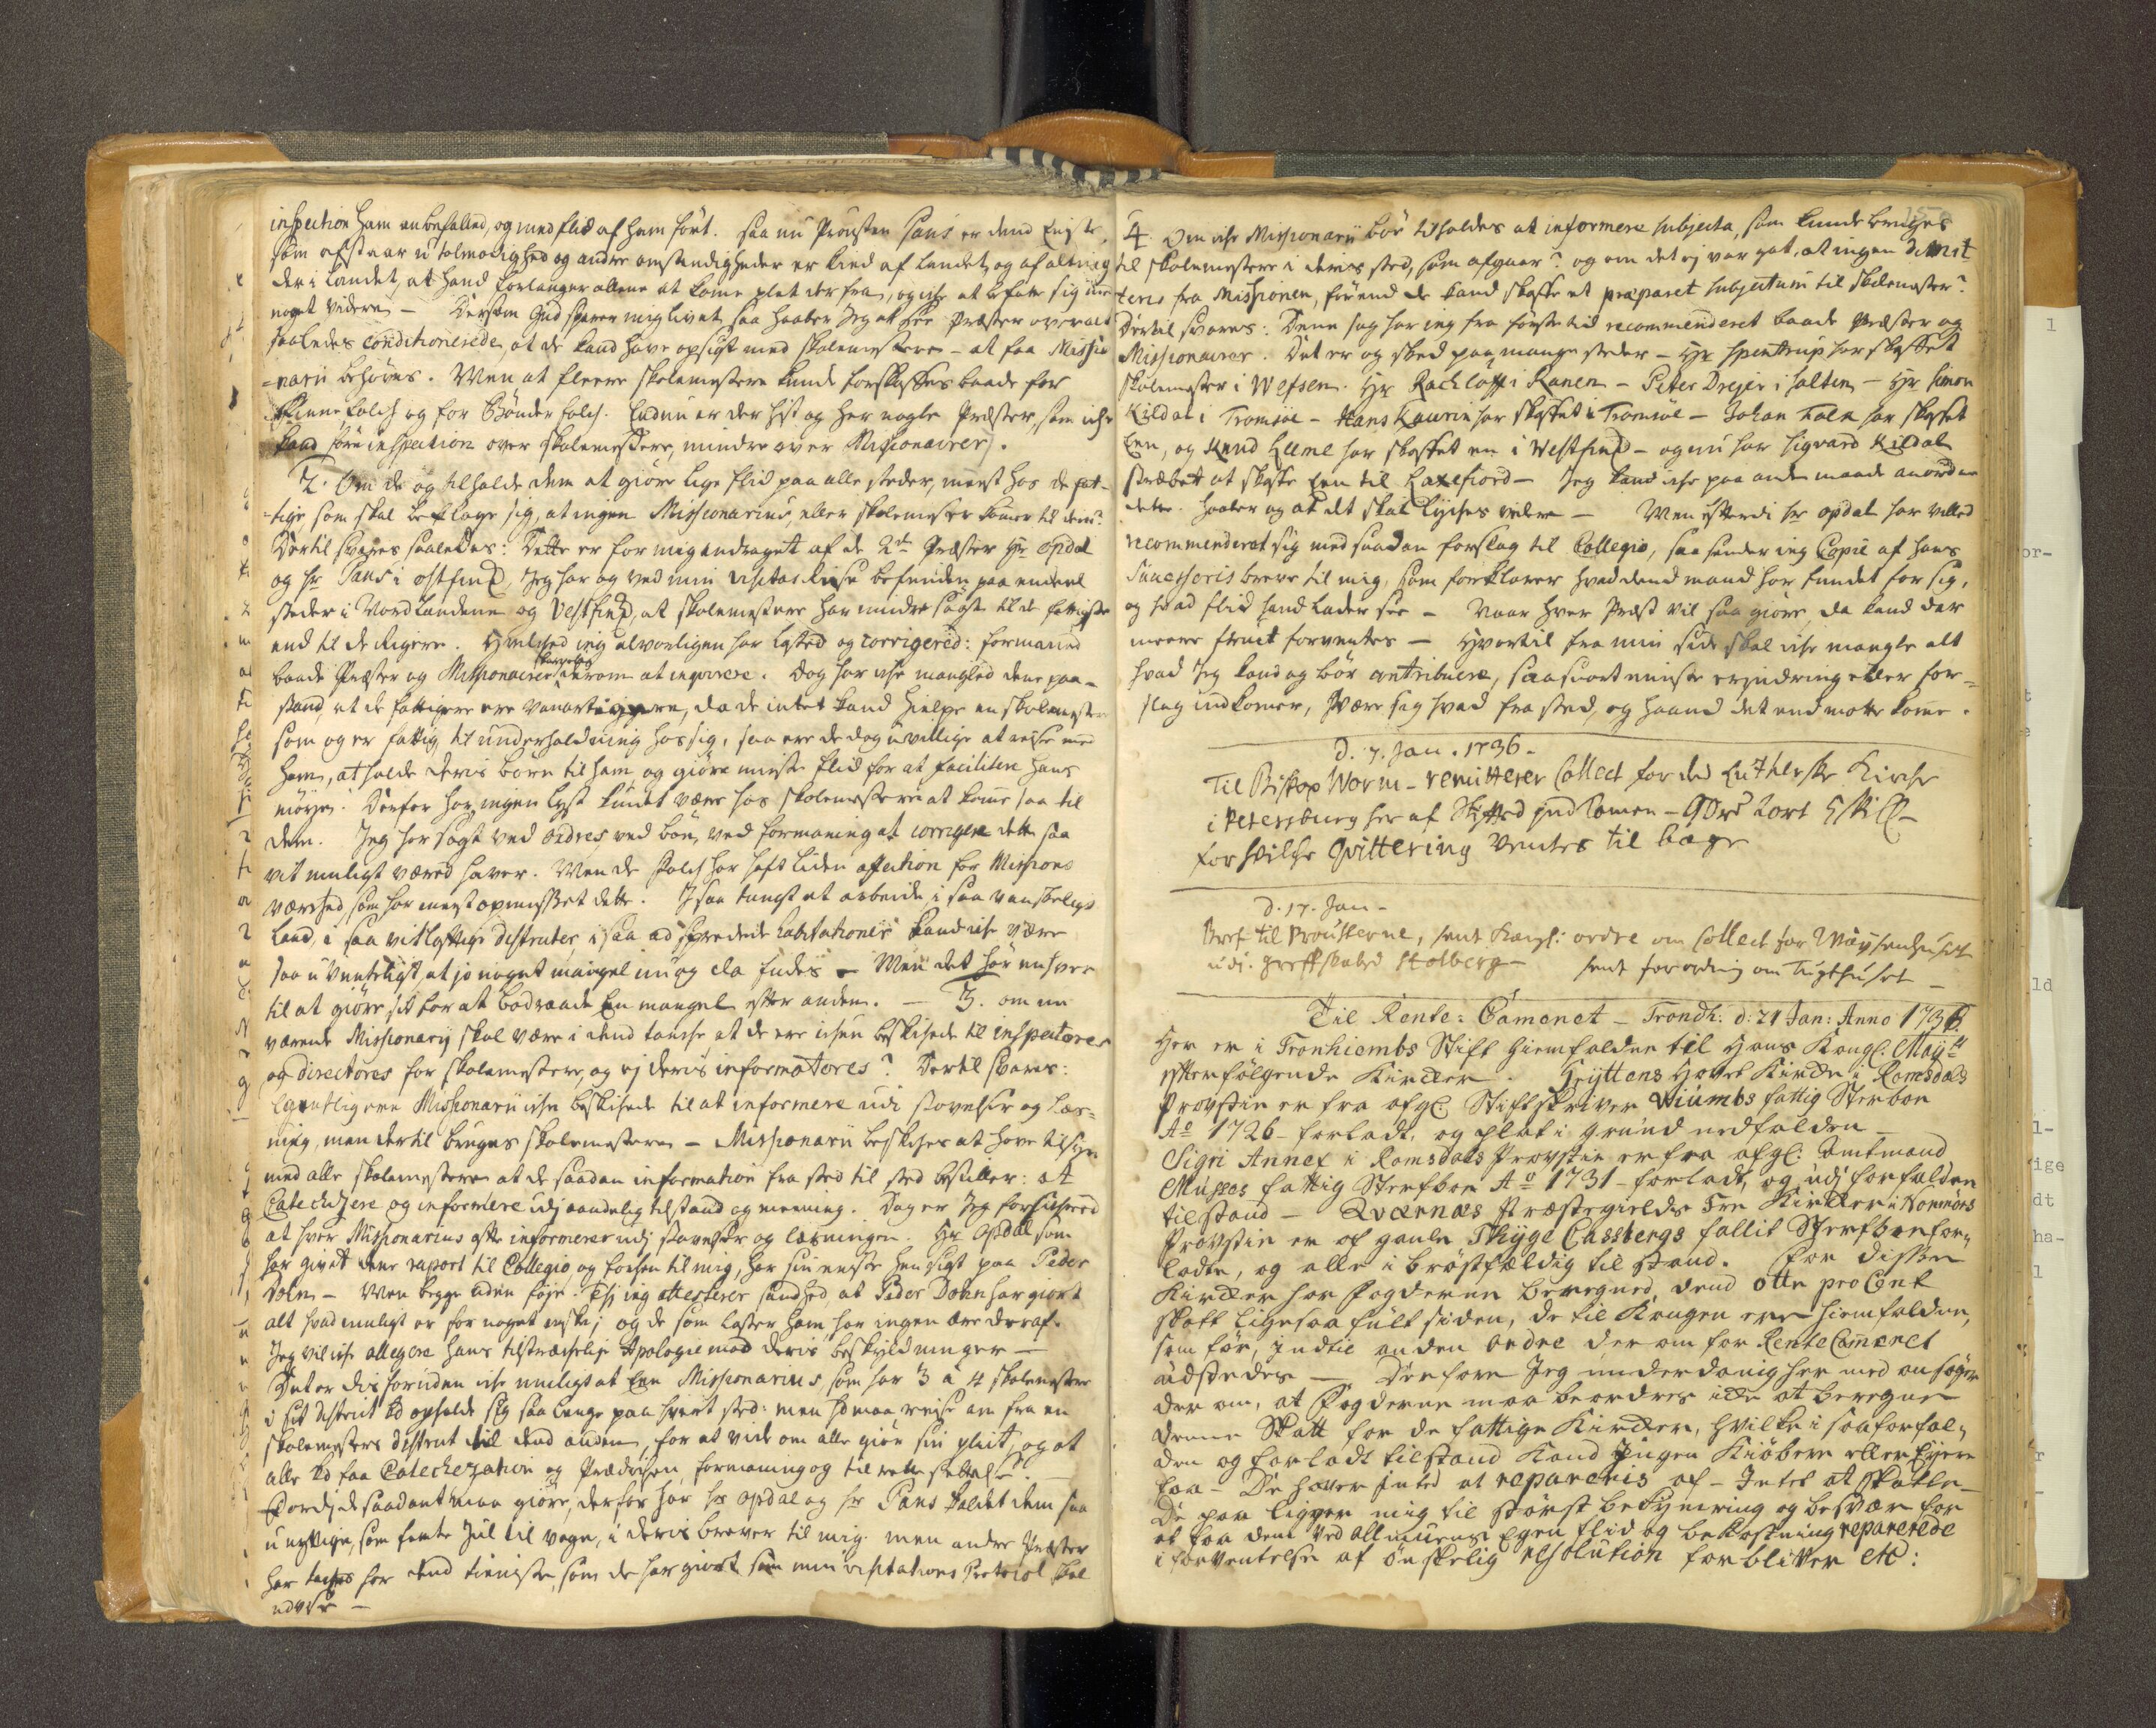 inspection ham anbefalled, og med flid af ham fört. Saa nu Prousten Paus er dend Eniste,
som afstaar u tolmodighed og andre omstændigheder er kied af landet, og af alting
der i landet, at hand forlanger allene at kome plat der fra, og iche at befatte sig
noget videre. Dersom Gud sparer mig livet saa haaber Jeg at see Præster overalt
saaledes conditionerede, at de kand have opsigt med skolemestere - at faa Missio
=narii behöves. Men at fleere skolemestere kunde forskaffes baade for
Finnefolch og for Bönderfolch. Endnu er der hist og her nogle Præster, som iche
kand före inspection over skolemestere, mindre over Missionairer.
2. Om de og tilholde dem at giöre lige flid paa alle steder, meest hos de fat-
tige, som skal beklage sig, at ingen Missionarius, eller skolemester komer til dem?
Dertil svares saaledes: Dette er for mig andraget af de 2de Præster Hr Opdal
og hr Paus i Ostfind, Jeg har og ved min visitas Reise befunden paa endeel
steder i Nordlandene og Vestfind, at skolemestere har mindre sögt til de fattigste
end til de Rigere. Hvilched ieg alvorligen har lasted og corrigered: formaned
baade Præster og Missionairer derom at inqvirere. Dog har iche mangled dene paa-
stand, at de fattigere ere vanartigere, da de intet kand hielpe en skolemester
som og er fattig til underholdning hos sig, saa ere de dog uvillige at reise med
ham, at holde deris börn til ham, og giöre meeste flid for at facilitere hans
möye. Derfor har ingen lyst kundet være hos skolemestere at kome saa til
dem. Jeg har sögt ved ordres, ved bön, ved formaning at corrigere dette saa
vit muligt væred haver. Men de folch har haft liden affection for Missions
værched, som har meest opmuntret dette. I saa tungt et arbeide, i saa vanskeligt
land, i saa vitløftige districter, i saa adspredede habitationer kand iche være
saa uventeligt, at jo noget mangel nu og da findes - Men det hör enhver
til at giöre sit for at bodraade Een mangel efter anden. - 3. om nu
værende Missionarij skal være i dend tanche at de ere iche beskikede til inspectores
og directores for skolemestere, og ej deris informatores? Dertil svares:
Egentlig ere Missionarii iche beskikede til at informere udi stavelser og Læs-
ning, men dertil bruges skolemestere - Missionarii beskikes at have tilsyn
med alle skolemestere at de saadan information fra sted til sted bestiller: at
Catechizere og informere udj aandelig tilstand og meening. Dog er Jeg forsichred
at hver Missionarius ofte informerer udj stavelser og læsningen. Hr Opdal som
har givet dene raport til Collegio og forhen til mig, har sin meeste hensigt paa Peder
Dolm - Men begge uden föje. Thj ieg attesterer sandhed, at Peder Dolm har giort
alt hvad muligt er for noget meniske; og de som laster ham har ingen ære deraf.
Jeg vil iche allegere hans tilstrechelige Apologie mod deris beskyldninger -
Det er desforuden iche muligt at Een Missionarius, som har 3 a 4 skolemestere
i sit district kd opholde sig saa lenge paa hvert sted: men hd maa reise om fra en
skolemesters district til dend anden, for at vide om alle giör sin pligt, og at
alle kd faa Catechezation og Prædichen, formaning og til rette settelse.
Fordj de saadant maa giöre, derfor har hr Opdal og hr Paus kaldet dem saa
unyttige, som femte Jul til vogn, i deris brever til mig. men andre Præster
har tachet for dend tieneste, som de har giort, som min visitations Protocol skal
udvise -
4. Om iche Missionarii bör tilholdes at informere subjecta, som kunde bruges
til skolemestere i deris sted, som afgaar? og om det ej var got, at ingen dimit-
teris fra Missionen, förend de kand skaffe et præparet subjectum til skolemester?
Dertil svares: Dene sag har ieg fra förste tid recommenderet baade Præster og
Missionairer. Det er og sked paa mange steder - Hr Spentrup har skaffet
skolemester i Wefsen. Hr Rachløff i Ranen - Peter Drejer i Salten - Hr Simon
Kildal i Tromsøe - Hans Kaurin har skaffet i Tromsøe - Johan Falck har skaffet
Een, og Knud Leeme har skaffet en i Westfind - og nu har Sigvard Kildal
stræbet at skaffe Een til Laxefiord - Jeg kand iche paa anden maade anordne
dette. Haaber og at det skal lyches videre - Men efterdi hr Opdal har villed
recommenderet sig med saadan forslag til Collegio, saa sender ieg Copie af hans
Successoris breve til mig, som forklarer hvad dend mand har fundet for sig,
og hvad flid hand lader see - Naar hver Præst vil saa giöre, da kand der
meere fruct forventes - Hvortil fra min side skal iche mangle alt
hvad Jeg kand og bör contribuere, saasnart mindste erindring eller for-
slag indkomer, være seg hvad fra sted, og haand det end motte kome.
d. 7. Jan. 1736.
Til Biskop Worm - remitterer Collect for ded Lutherske Kirche
i Petersburg her af Stifted jndkomen - 9 Dr 2 ort 5 skill
for hvilche qvittering ventes til bage
d. 17. Jan -
Bref til Prousterne, sendt Kongl: ordre om Collect for Wäysenhuset
udi Grefskabed Stolberg - sendt forordning om Tugthuset -
Til Rente: Camenet - Trondh: d: 21 Jan: Anno 1736.
Her er i Tronhiembs Stift hiemfalden til Hans Kongl: Mayts
efterfölgende Kircker. Gryttens Hoved Kircke i Romsdals
Provstie er fra afgl: Stiftskriver Wiumbs fattig Sterboe
Ao 1726 - forladt, og plat i grund nedfalden -
Sigri Annex i Romsdals Provstie er fra afgl: Amtmand
Mussos fattig Sterfboe Ao 1731 - forladt, og udj forfalden
tilstand - Qvernæs Præstegields Tre Kircker i Nommörs
Provstie er af gamle Thyge Cassbergs fallit Sterfboe for-
ladte, og alle i bröstfældig til stand. For disse
Kircker har Fogderne beregned, dend otte pro Cent
skatt ligesaa fult siden, de til Kongen ere hiemfalden,
som för, indtil anden ordre der om for Rente Cameret
udstedes - Derfore Jeg underdanig her med ansöger
der om, at Fogderne maa beordres icke at beregne
denne Skatt for de fattige Kircker, hvilke i saa forfal-
den og forladt tilstand Kand Ingen Kiöbere eller Eyere
faa - De haver inted at repareris af - Intet at skatte -
De paa ligger mig til störst bekymring og besvær for
at faa dem ved Allmuens Egen flid og bekostning reparerede
i forventelse af önskelig resolution forbliver etc: